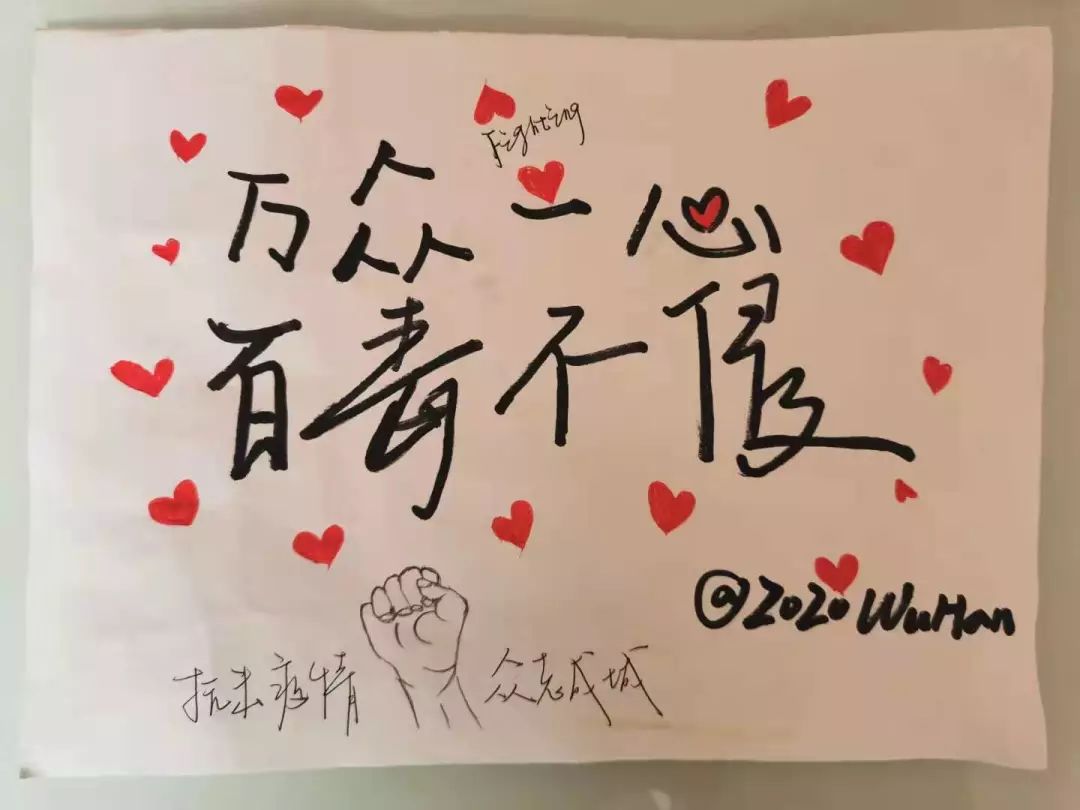 Fighting
万众一心
百毒不侵
@2020 WuHan
抗击疫情 众志成城